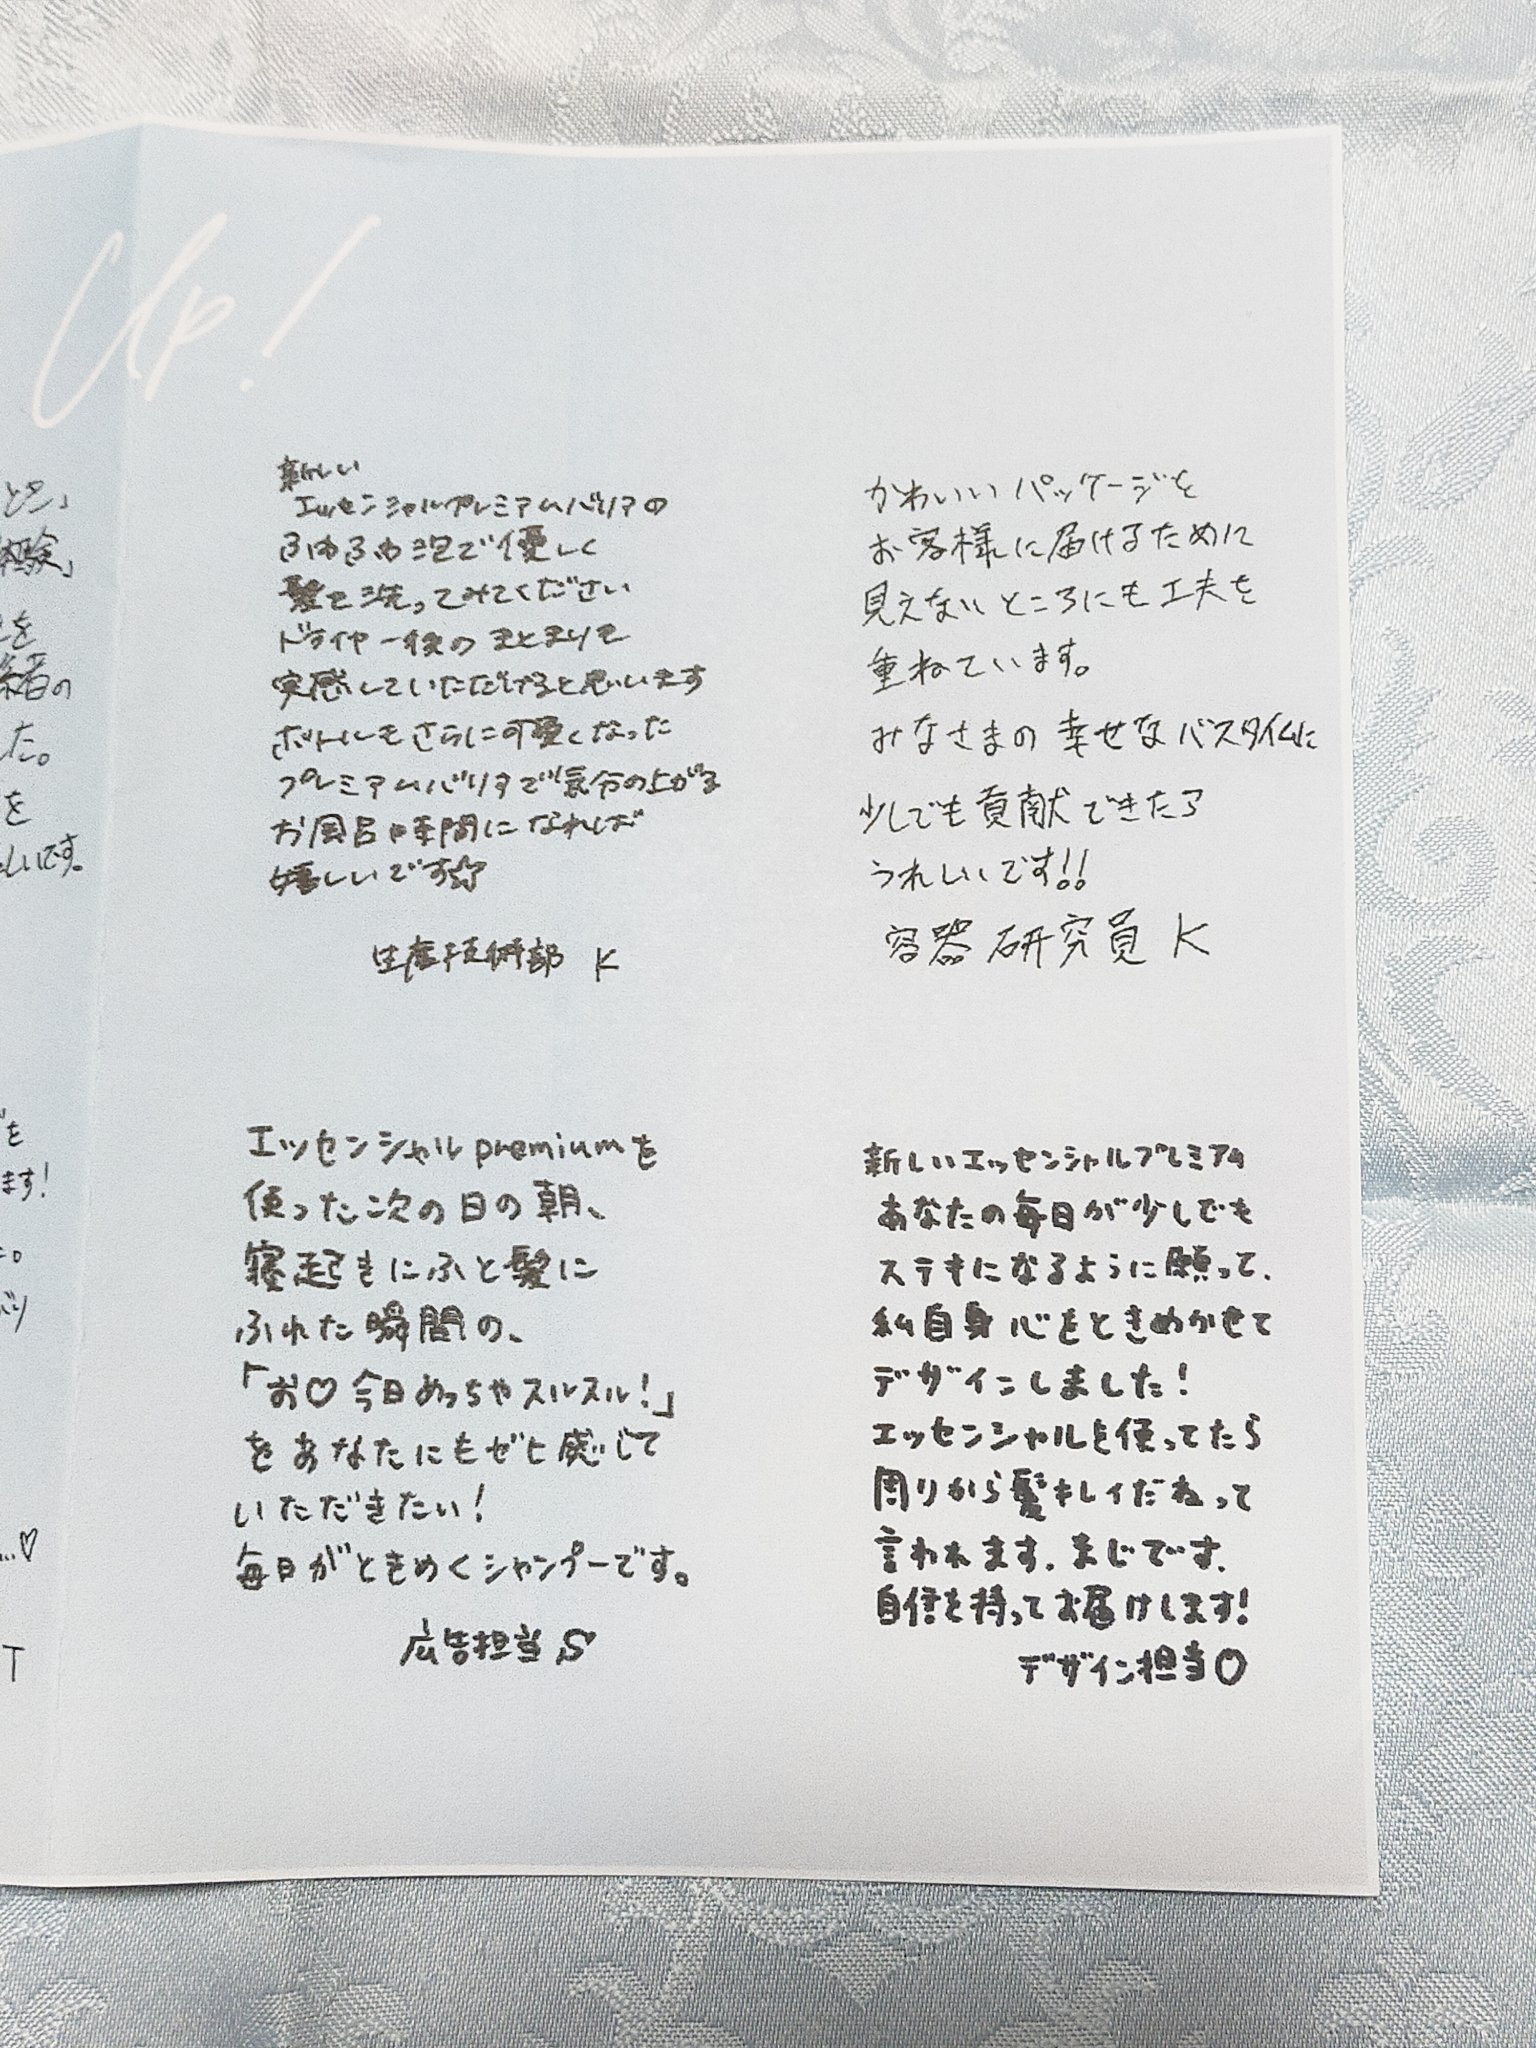 Up!
とミ」
体験」
を
緒の
た。
を
しいです。
新しい
エッセンシャルプレミアムバリアの
ふわふわ泡で優しく
髪を洗ってみてください
ドライヤー後のまとまりを
実感していただけると思います
ボトルもさらに可愛くなった
プレミアムバリアで気分の上がる
お風呂時間になれば
嬉しいです☆
生産技術部 K
かわいいパッケージを
お客様に届けるために
見えないところにも工夫を
重ねています。
みなさまの幸せなバスタイムに
少しでも貢献できたら
うれしいです!!
容器研究員 K
を
ます!
。
バリ
...♡
T
エッセンシャルpremiumを
使った次の日の朝、
寝起きにふと髪に
ふれた瞬間の、
「お♡今日めっちゃスルスル!」
をあなたにもぜヒ感じて
いただきたい!
毎日がときめくシャンプーです。
広告担当 S
新しいエッセンシャルプレミアム
あなたの毎日が少しでも
ステキになるように願って、
私自身心をときめかせて
デザインしました!
エッセンシャルを使ってたら
周りから髪キレイだねって
言われます。まじです。
自信を持ってお届けします!
デザイン担当 O